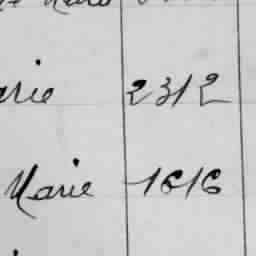 Marie 2312
Marie 1616